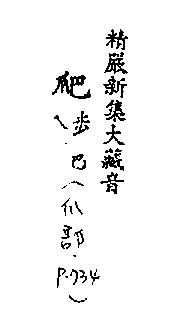 精嚴新集大藏音
爬 步巴(爪部.
P.734)